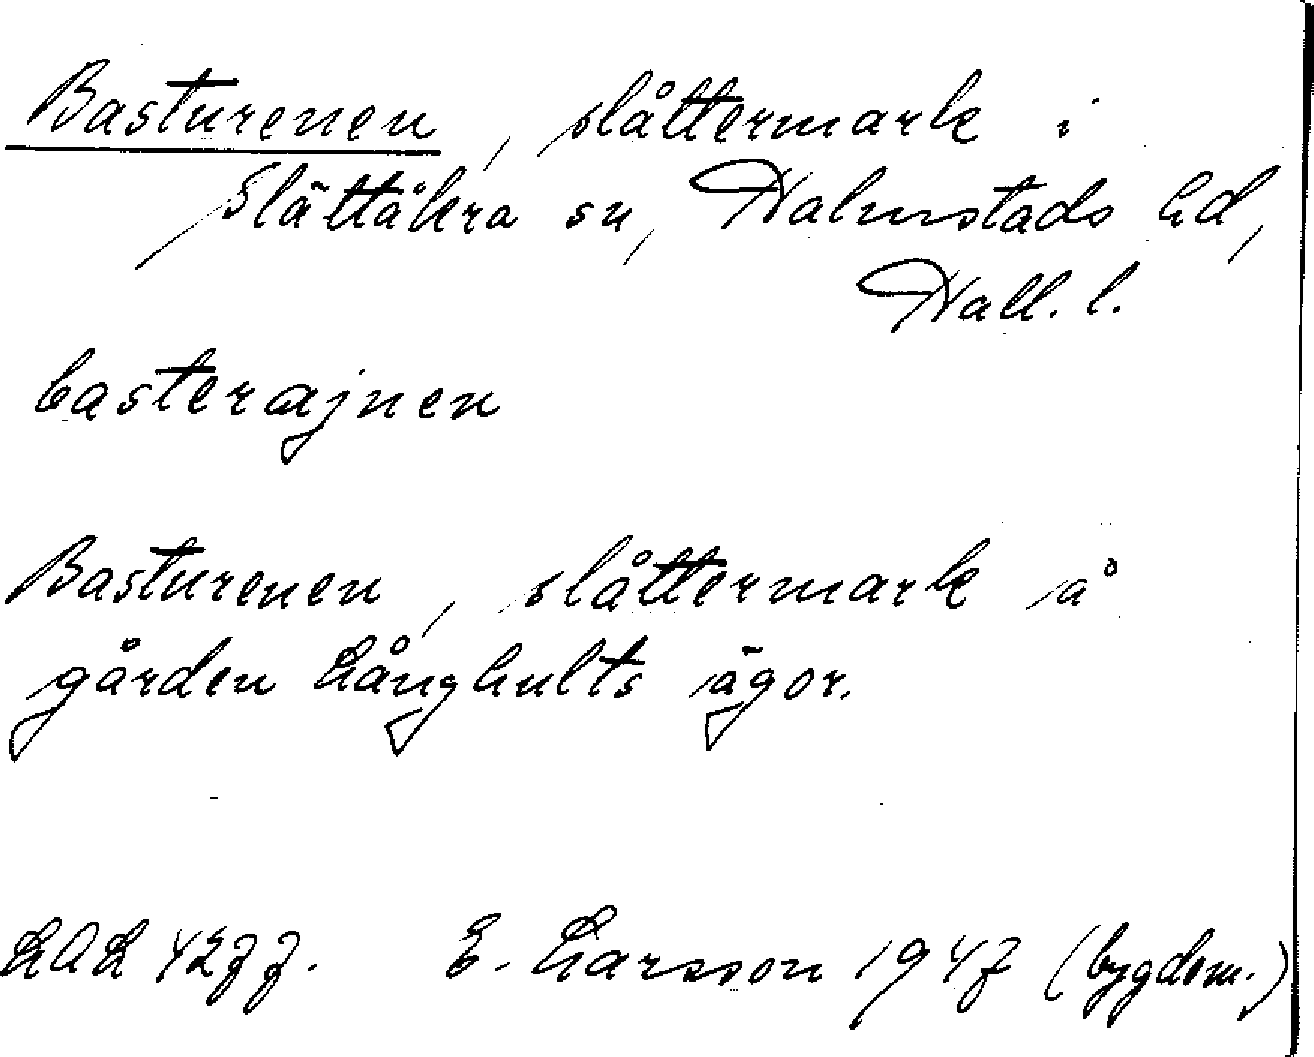 Basturenen, slåttermark i
Slättåkra sn, Halmstads hd,
Hall. l.
basterajnen
Basturenen, slåttermark å
gården Långhults ägor.
LAL 4277. E. Larsson 1947 (bygdem.)